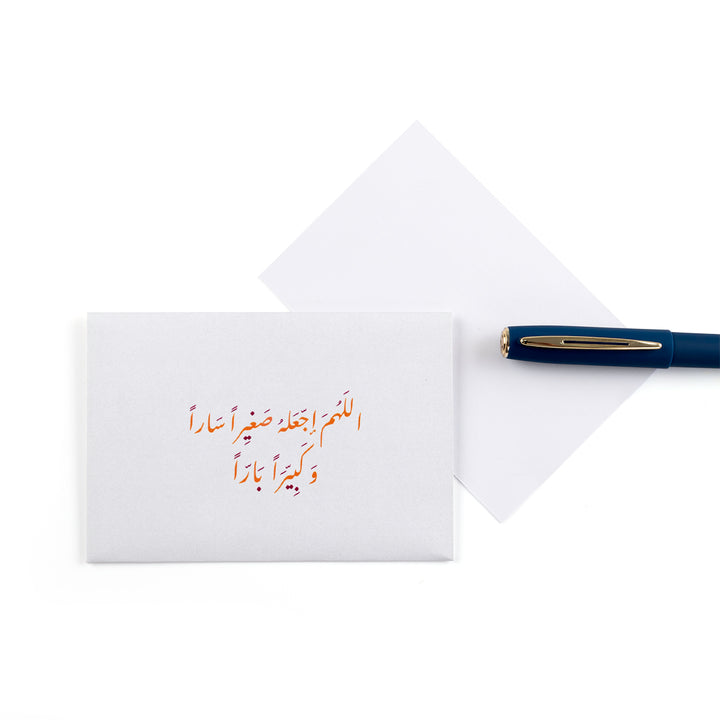 اللَهُمَ إجّعَلهُ صَغِيراً سَاراً
وَ كَبِيّرَاً بَارّاً